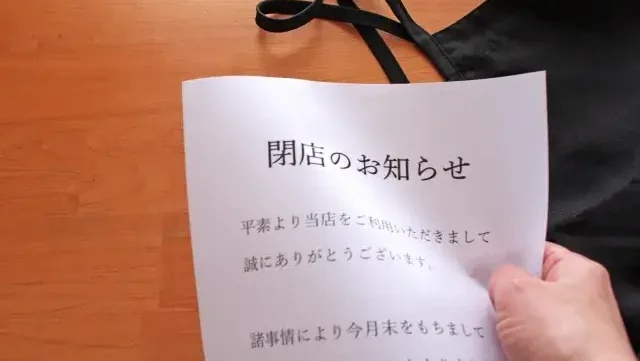 閉店のお知らせ
平素より当店をご利用いただきまして
誠にありがとうございます。
諸事情により今月末をもちまして